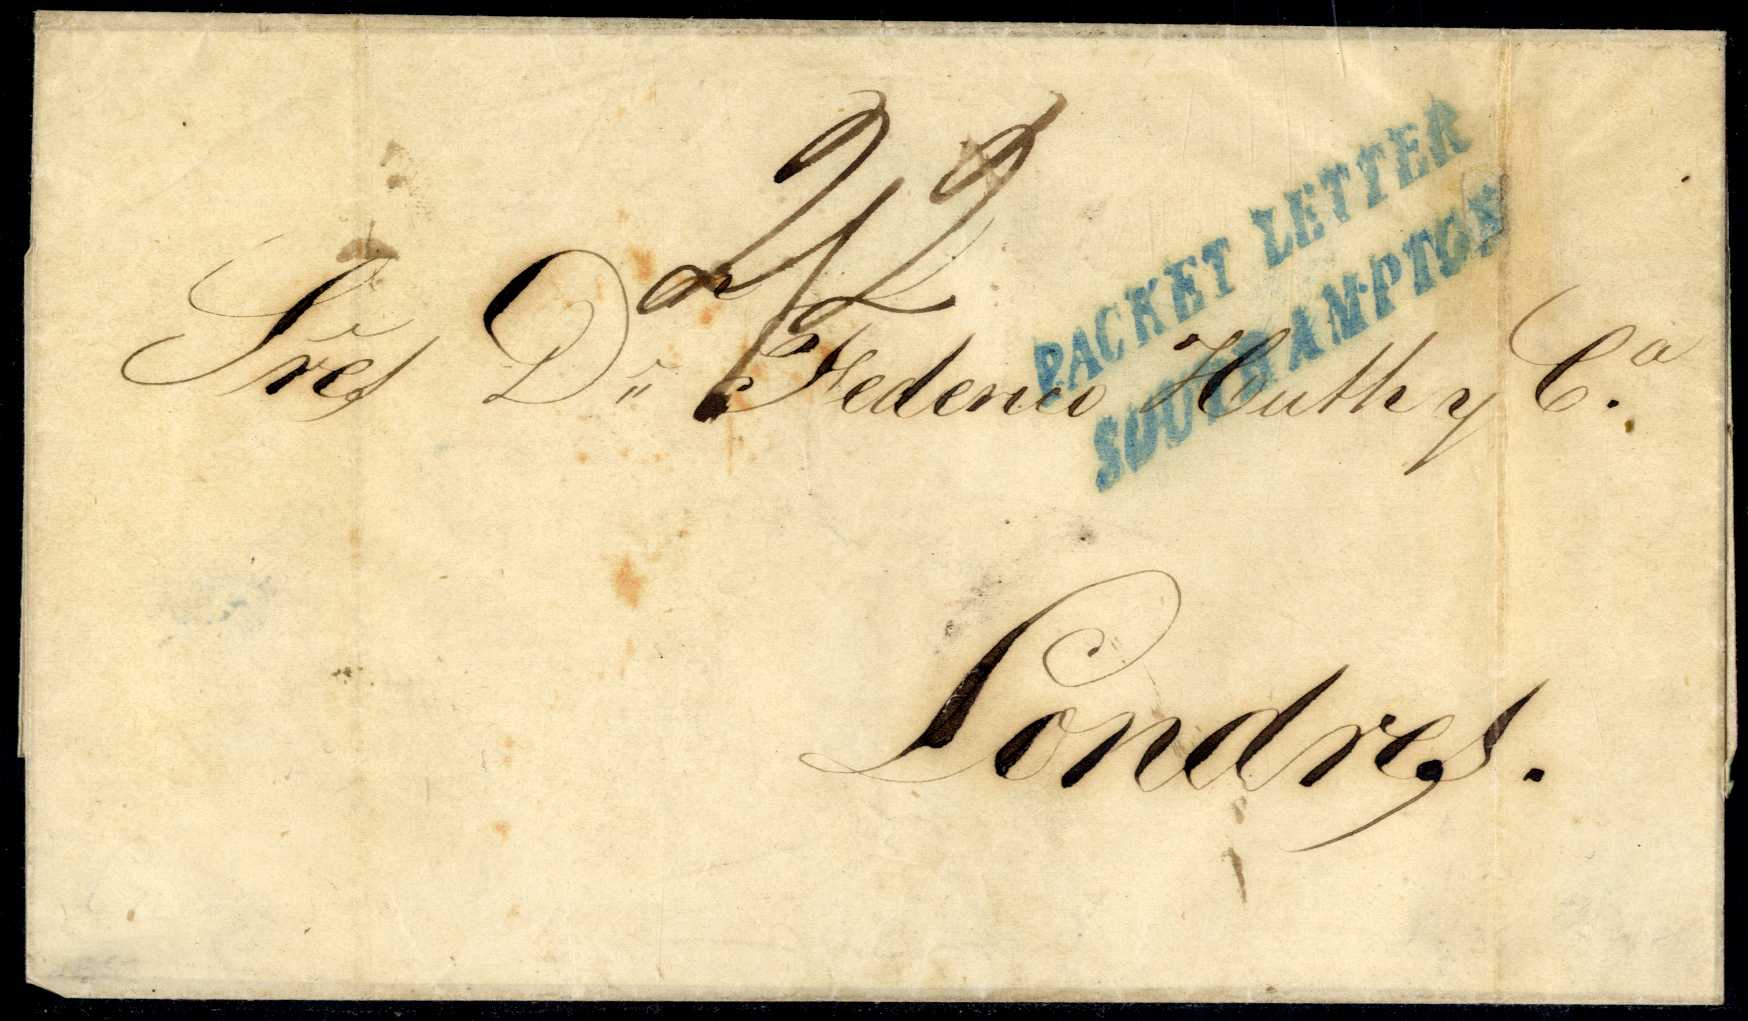 2/2
PACKET LETTER
SOUTHAMPTON
Sres Dn Federico Huth y Ca.
Londres.